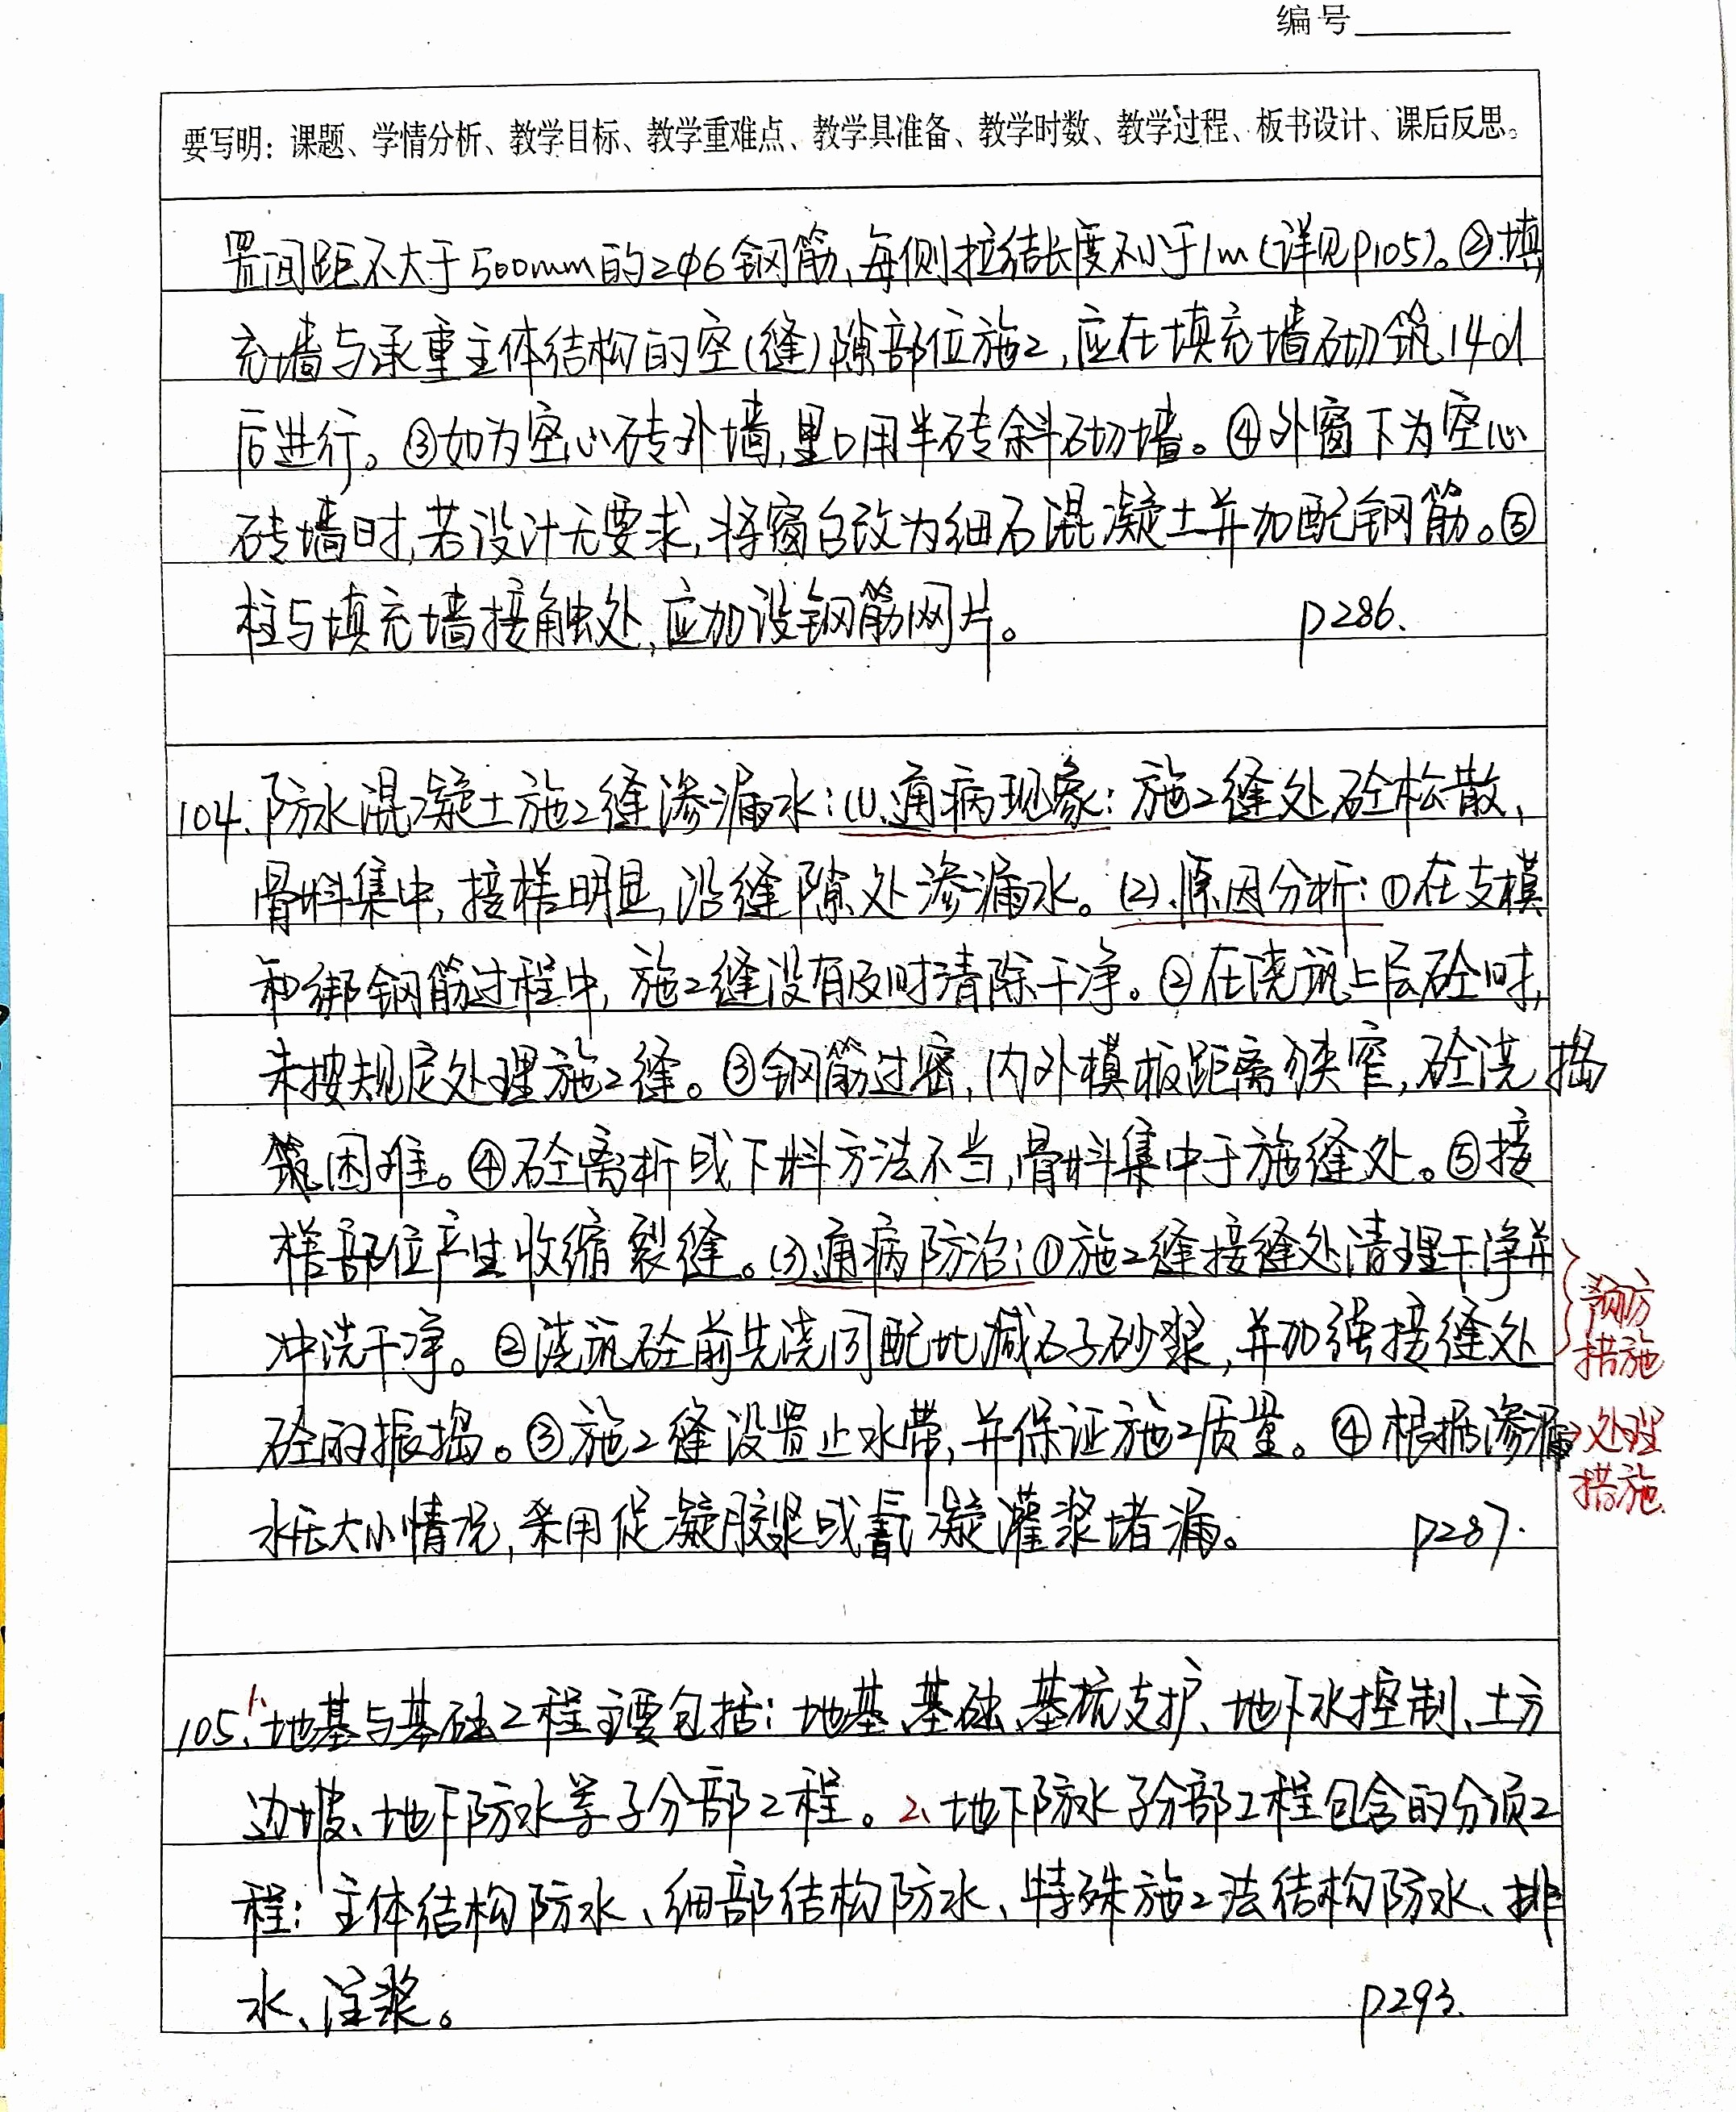 编号
要写明：课题、学情分析、教学目标、教学重难点、教学具准备、教学时数、教学过程、板书设计、课后反思。
置间距不大于500mm的2φ6钢筋，每侧拉结长度不小于1m（详见P105）。②填
充墙与承重主体结构的空（缝）隙部位施工，应在填充墙砌筑14d
后进行。③如为空心砖外墙，里口用半砖斜砌墙。④外窗下为空心
砖墙时，若设计无要求，将窗台改为细石混凝土并加配钢筋。⑤
柱与填充墙接触处，应加设钢筋网片。 P286.
104.防水混凝土施工缝渗漏水：(1)、通病现象：施工缝处砼松散，
骨料集中，接槎明显，沿缝隙处渗漏水。(2)、原因分析：①在支模
和绑钢筋过程中，施工缝没有及时清除干净。②在浇筑上层砼时，
未按规定处理施工缝。③钢筋过密，内外模板距离狭窄，砼浇捣
筑困难。④砼离析或下料方法不当，骨料集中于施缝处。⑤接
槎部位产生收缩裂缝。(3)、通病防治：①施工缝接缝处清理干净并
冲洗干净。②浇筑砼前先浇同配比减石子砂浆，并加强接缝处
预防
措施
砼的振捣。③施工缝设置止水带，并保证施工质量。④根据渗漏
处理
措施.
水压大小情况，采用促凝胶浆或氰凝灌浆堵漏。 P287.
105、1、地基与基础工程主要包括：地基、基础、基坑支护、地下水控制、土方、
边坡、地下防水等子分部工程。2、地下防水子分部工程包含的分项工
程：主体结构防水、细部结构防水、特殊施工法结构防水、排
水、注浆。 P293.